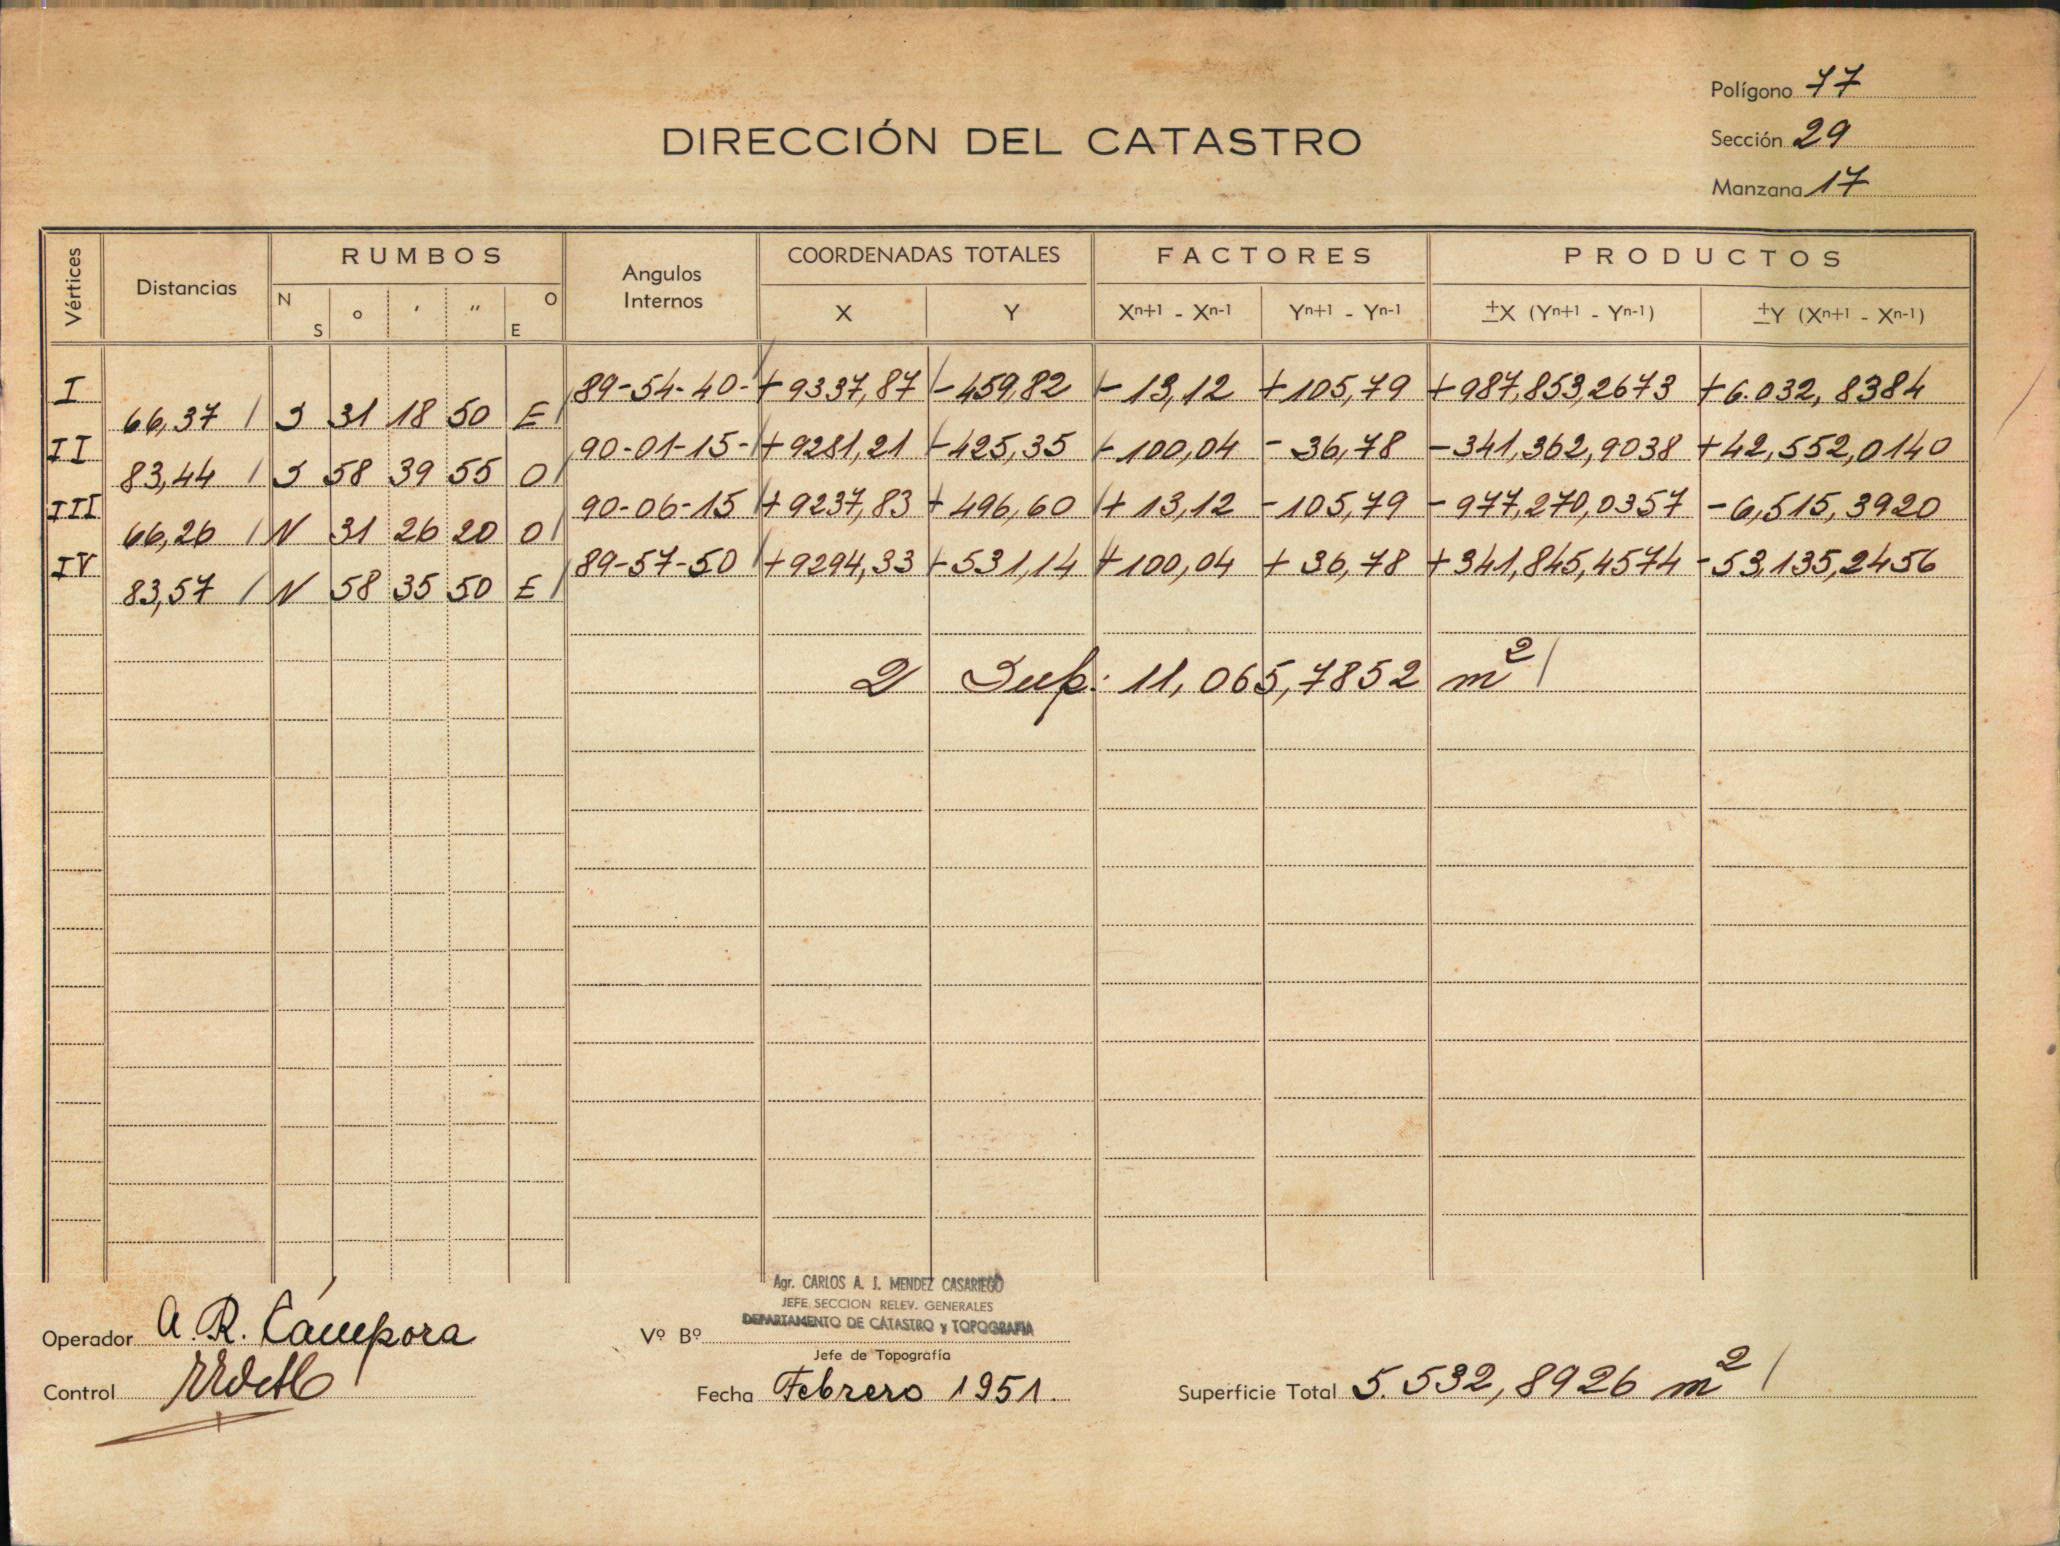 Polígono 77
DIRECCIÓN DEL CATASTRO
Sección 29
Manzana 17
Vértices Distancias RUMBOS Angulos Internos COORDENADAS TOTALES FACTORES PRODUCTOS
N S ° ′ ″ O E X Y Xⁿ⁺¹ - Xⁿ⁻¹ Yⁿ⁺¹ - Yⁿ⁻¹ ±X (Yⁿ⁺¹ - Yⁿ⁻¹) ±Y (Xⁿ⁺¹ - Xⁿ⁻¹)
I 89-54-40- +9337,87 -459,82 -13,12 +105,79 +987,853,2673 +6.032,8384
66,37 S 31 18 50 E
II 90-01-15- +9281,21 -425,35 -100,04 -36,78 -341,362,9038 +42,552,0140
83,44 S 58 39 55 O
III 90-06-15 +9237,83 -496,60 +13,12 -105,79 -977,270,0357 -6,515,3920
66,26 N 31 26 20 O
IV 89-57-50 +9294,33 -531,14 +100,04 +36,78 +341,845,4574 -53,135,2456
83,57 N 58 35 50 E
2 Sup: 11,065,7852 m²
Agr. CARLOS A. J. MENDEZ CASARIEGO
JEFE SECCION RELEV. GENERALES
DEPARTAMENTO DE CATASTRO y TOPOGRAFIA
Operador A. R. Cámpora
Vº Bº
Jefe de Topografía
Control
Fecha Febrero 1951.
Superficie Total 5.532,8926 m²